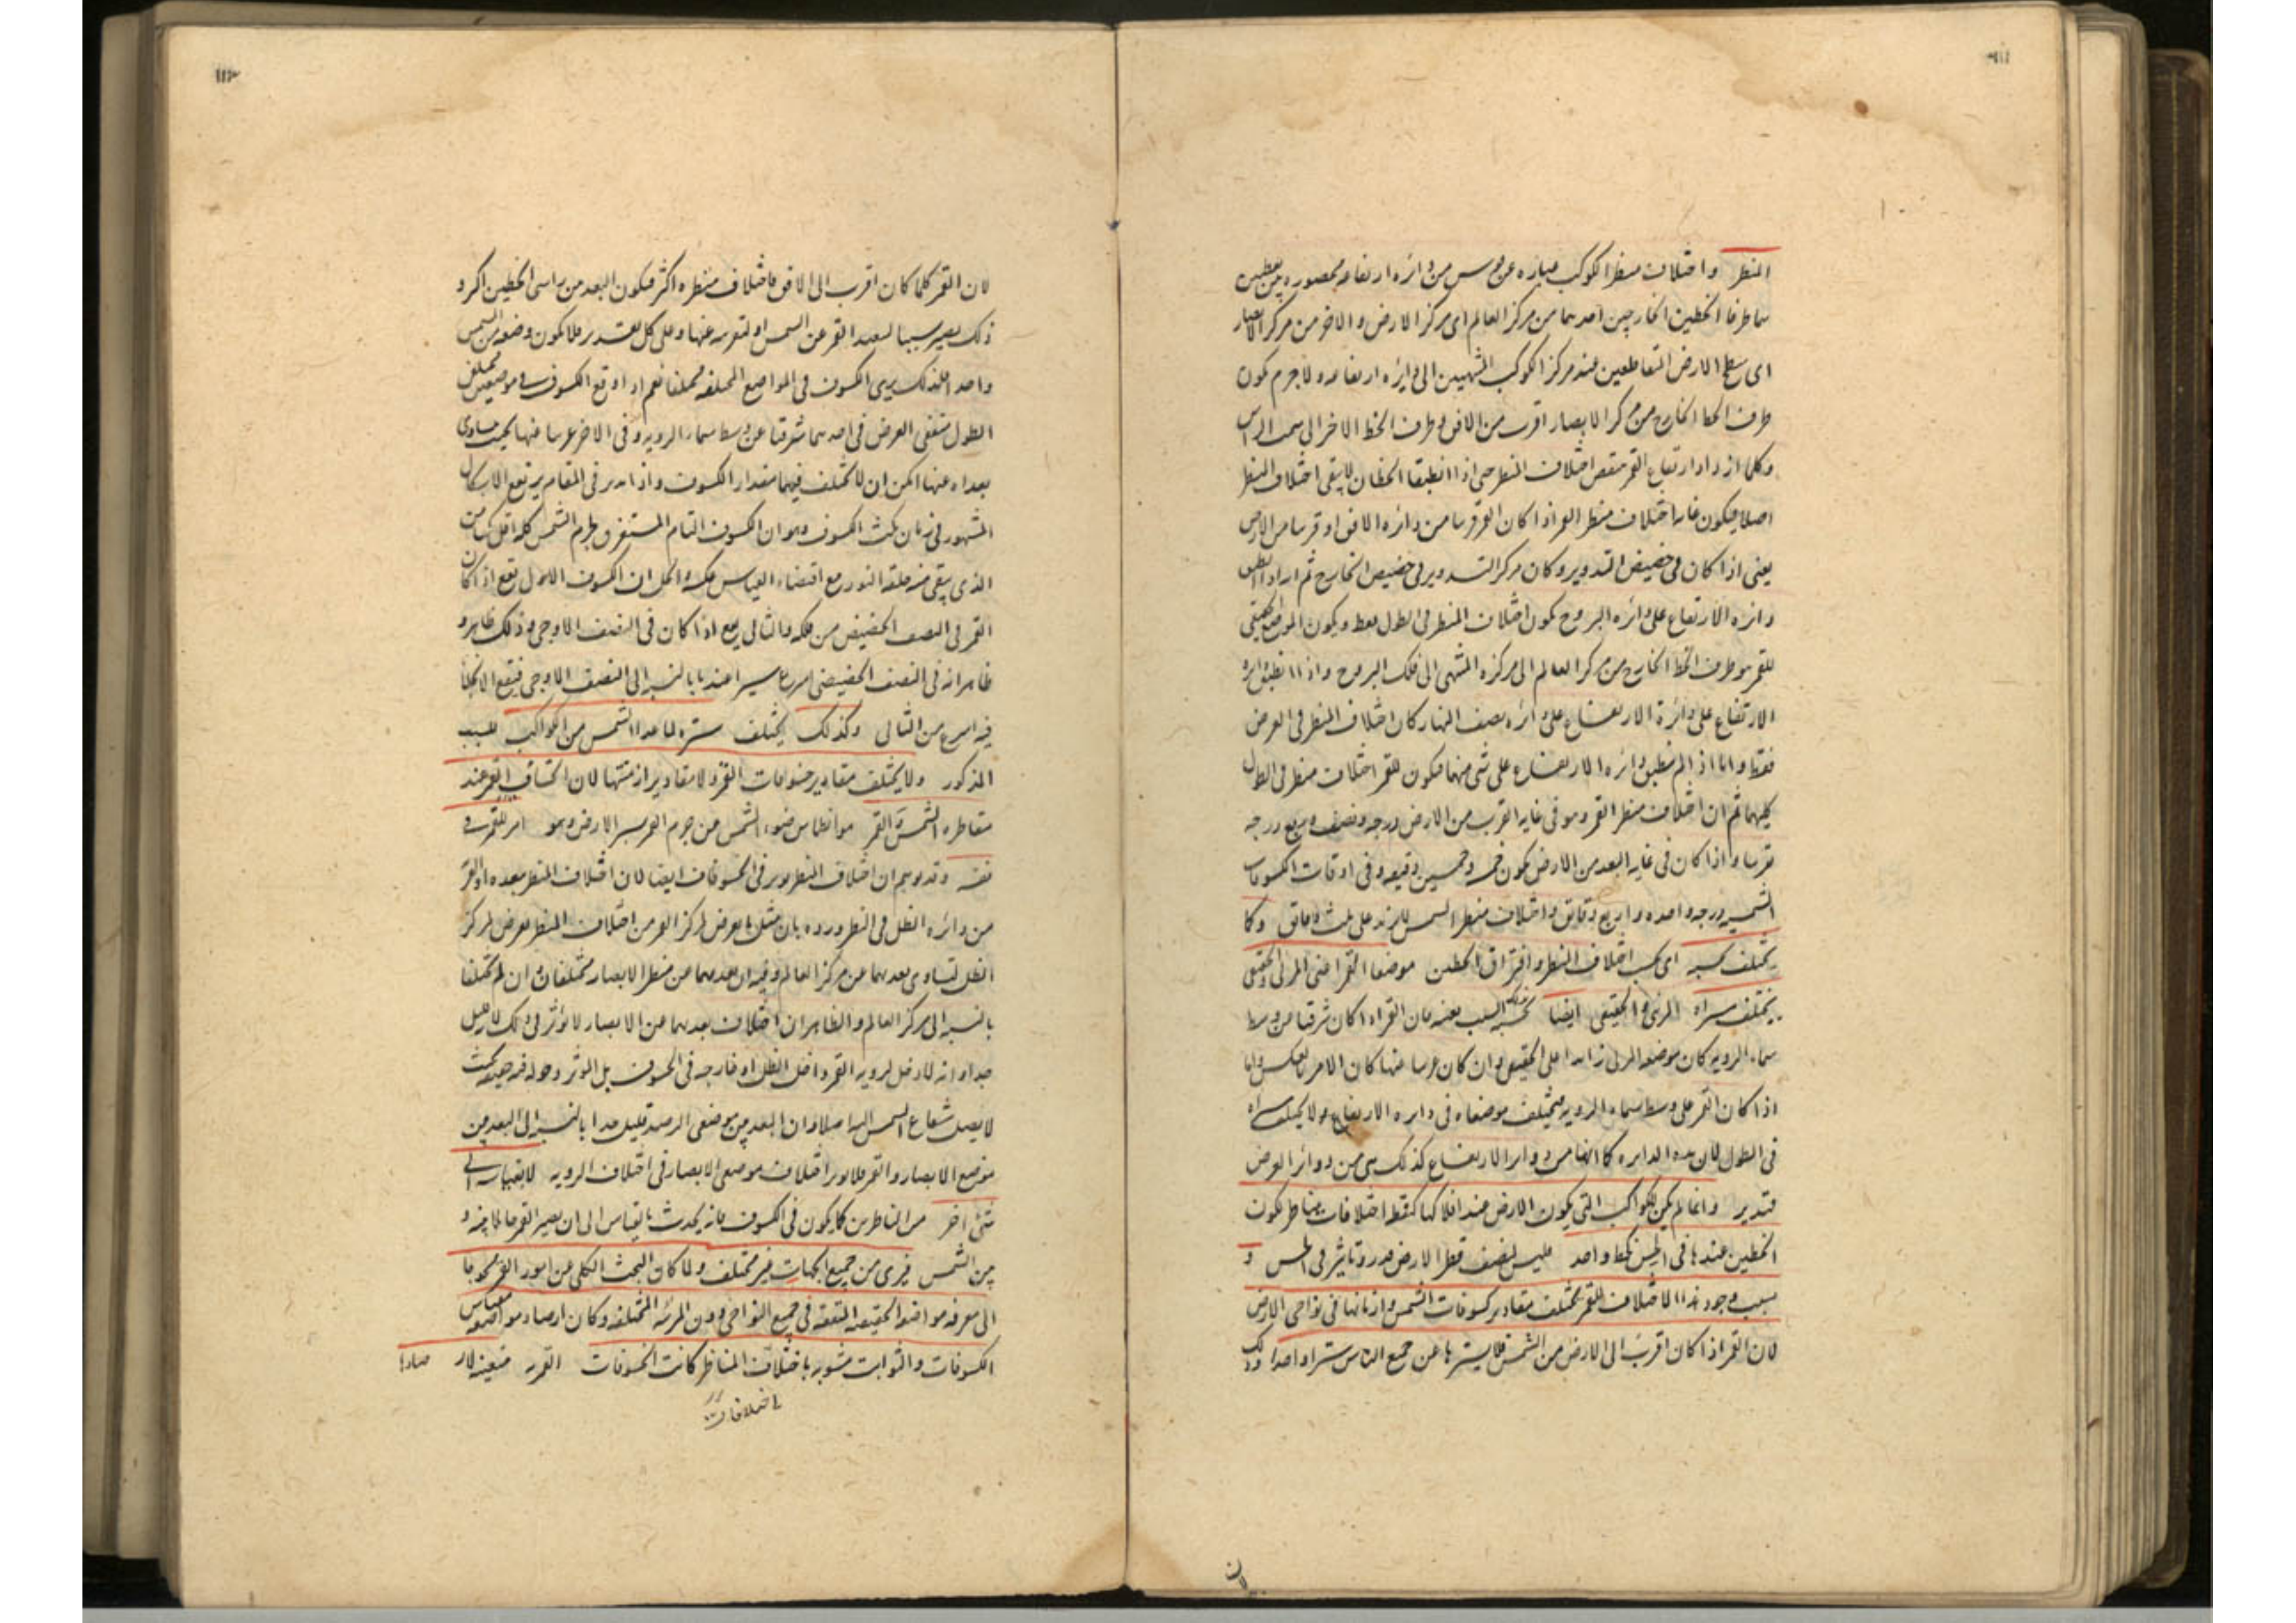 المنظر واختلاف منظر الكوكب عبارة عن قوس من دائرة ارتفاعه محصورة بين نقطتين
هما طرفا الخطين الخارجين احدهما من مركز العالم اى مركز الارض والاخر من مركز الابصار
اى سطح الارض المتقاطعين عند مركز الكوكب المنتهيين الى دائرة ارتفاعه ولاجرم يكون
طرف الخط الخارج من مركز الابصار اقرب من الافق وطرف الخط الاخر الى سمت الراس
وكلما ازداد ارتفاع القمر نقص اختلاف المنظر حتى اذا انطبقا الخطان لايبقى اختلاف المنظر
اصلا فيكون غاية اختلاف منظر القمر اذا كان القمر قريبا من دائرة الافق او قريبا من الارض
يعنى اذا كان فى حضيض التدوير وكان مركز التدوير فى حضيض الخارج ثم اذا انطبق
دائرة الارتفاع على دائرة البروج يكون اختلاف المنظر فى الطول فقط ويكون الموضع الحقيقى
للقمر هو طرف الخط الخارج من مركز العالم الى مركزه المنتهى الى فلك البروج واذا انطبق دائرة
الارتفاع على دائرة الارتفاع على دائرة نصف النهار كان اختلاف المنظر فى العرض
فقط واما اذا لم ينطبق دائرة الارتفاع على شئ منهما فيكون للقمر اختلاف منظر فى الطول
كليهما ثم ان اختلاف منظر القمر وهو فى غاية القرب من الارض درجة ونصف وربع درجة
تقريبا واذا كان فى غاية البعد من الارض يكون خمس وخمسين دقيقة وفى اوقات الكسوفات
الشمسية درجة واحدة واربع دقايق واختلاف منظر الشمس لايزيد على ثلث دقايق وكما
يختلف بحسبه اى بحسب اختلاف المنظر وافتراق الخطين موضعا القمر اعنى المرئى والحقيقى
يختلف مسيراه المرئى والحقيقى ايضا بحسب ذلك السبب بعينه فان القمر اذا كان شرقيا من وسط
سماء الروية كان موضعه المرئى زايدا على الحقيقى وان كان غربيا عنها كان الامر بالعكس واما
اذا كان القمر على وسط سماء الروية فيختلف موضعاه فى دايرة الارتفاع ولا يختلف مسيراه
فى الطول لان هذه الدايرة كما انها من دواير الارتفاع كذلك هى من دوائر العرض
فتدبر وانما لم يكن للكواكب التى يكون الارض عند افلاكها كنقطة اختلافات مناظر لكون
الخطين عندها فى الحس كخط واحد فليس لنصف قطر الارض قدر وتاثير فى الحس و
بسبب وجود هذا الاختلاف للقمر يختلف مقادير كسوفات الشمس وازمانها فى نواحى الارض
لان القمر اذا كان اقرب الى الارض من الشمس فلايسترها عن جميع الناس سترا واحدا وذلك
لان
لان القمر كلما كان اقرب الى الافق فاختلاف منظره اكثر فيكون البعد من راسى الخطين اكثر و
ذلك يصير سببا لبعد القمر عن الشمس او لقربه عنها وعلى كل تقدير فلا يكون وضعه من الشمس
واحدا فلذلك يرى الكسوف فى المواضع المختلفة مختلفا نعم اذا وقع الكسوف فى موضعين مختلفى
الطول متفقى العرض فى احدهما شرقيا عن وسط سماء الروية وفى الاخر غربيا عنها بحيث يتساوى
بعداه عنها امكن ان لا يختلف فيهما مقدار الكسوف واذا تدبر فى المقام يرتفع الاشكال
المشهور فى زمان مكث الكسوف وهو ان الكسوف التام المستغرق لجرم الشمس كله اقل مكثا من
الذى يبقى منه حلقة النور مع اقتضاء القياس عكسه والحل ان الكسوف الاول يقع اذا كان
القمر فى النصف الحضيضى من فلكه والثانى يقع اذا كان فى النصف الاوجى وذلك ظاهر و
ظاهر انه فى النصف الحضيضى اسرع سيرا عندنا بالنسبة الى النصف الاوجى فيقع الانجلاء
فيه اسرع من الثانى وكذلك يختلف ستره لما عدا الشمس من الكواكب للسبب
المذكور ولايختلف مقادير خسوفات القمر ولا مقادير ازمنتها لان انكساف القمر عند
مقاطرة الشمس القمر هو انطماس ضوء الشمس من جرم القمر بستر الارض وهو امر للقمر فى
نفسه وقد يوهم ان اختلاف المنظر يوثر فى الخسوفات ايضا لان اختلاف المنظر يبعده او القمر
من دائرة الظل فى النظر ورد بان مثل ما يعرض لمركز القمر من اختلاف المنظر يعرض لمركز
الظل لتساوى بعدهما من مركز العالم وفيه ان بعدهما من منظر الابصار مختلفان وان لم يختلفا
بالنسبة الى مركز العالم والظاهر ان اختلاف بعدهما عن الابصار لا يوثر فى ذلك لانه قليل
جدا وانه لا دخل لروية القمر داخل الظل او خارجه فى الخسوف بل الموثر دخوله فيه حقيقة بحيث
لايصل شعاع الشمس اليه اصلا وان البعد بين موضعى الرصد قليل جدا بالنسبة الى البعد بين
موضع الابصار والقمر فلا يوثر اختلاف موضعى الابصار فى اختلاف الروية لابقياسه الى
شئ اخر من الناظرين كما يكون فى الكسوف فانه يحدث بالقياس الى ان يصير القمر حائلا بينه و
بين الشمس فيرى من جميع الجهات غير مختلف ولما كان البحث الكلى عن امور القمر محوجا
الى معرفة مواضعه الحقيقية المتفقة فى جميع النواحى دون المرئية المختلفة وكان ارصاد مواضعه بقياس
الكسوفات والثوابت مشوبة باختلاف المناظر كانت الخسوفات القمرية متعينة لار صادا
باختلافات